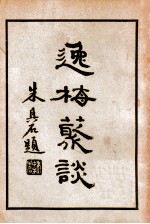 逸梅叢談
朱其石題